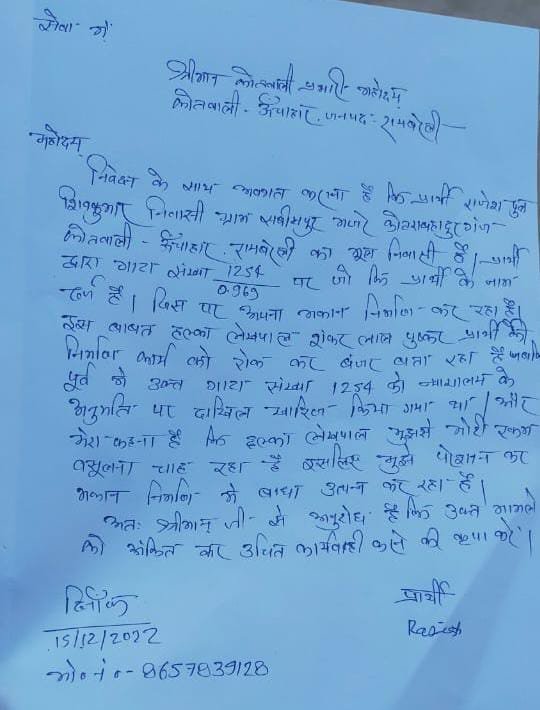 सेवा में
श्रीमान कोतवाली प्रभारी महोदय
कोतवाली - ऊँचाहार, जनपद - रायबरेली
महोदय
निवेदन के साथ अवगत कराना है कि प्रार्थी राजेश पुत्र
शिवकुमार निवासी ग्राम मजरे कोटराबहादुरगंज
कोतवाली - ऊँचाहार, रायबरेली का मूल निवासी है। प्रार्थी
द्वारा गाटा संख्या 1254/0.969 पर जो कि प्रार्थी के नाम
दर्ज है। जिस पर अपना मकान निर्माण कर रहा है।
इस बाबत हल्का लेखपाल शंकर लाल प्रार्थी की
निर्माण कार्य को रोक कर बंजर बता रहा है जबकि
पूर्व में उक्त गाटा संख्या 1254 को न्यायालय के
अनुमति पर दाखिल खारिज किया गया था। और
मेरा कहना है कि हल्का लेखपाल मुझसे मोटी रकम
वसूलना चाह रहा है इसलिए मुझे परेशान कर
मकान निर्माण में बाधा उत्पन्न कर रहा है।
अतः श्रीमान जी से अनुरोध है कि उक्त मामले
को अंकित कर उचित कार्यवाही करने की कृपा करें।
दिनाँक
15/12/2022
प्रार्थी
Rajesh
मो॰ नं॰ - 8657839128